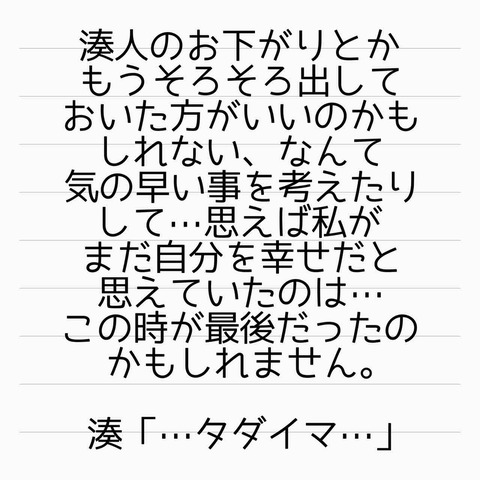 湊人のお下がりとか
もうそろそろ出して
おいた方がいいのかも
しれない、なんて
気の早い事を考えたり
して…思えば私が
まだ自分を幸せだと
思えていたのは…
この時が最後だったの
かもしれません。
湊「…タダイマ…」